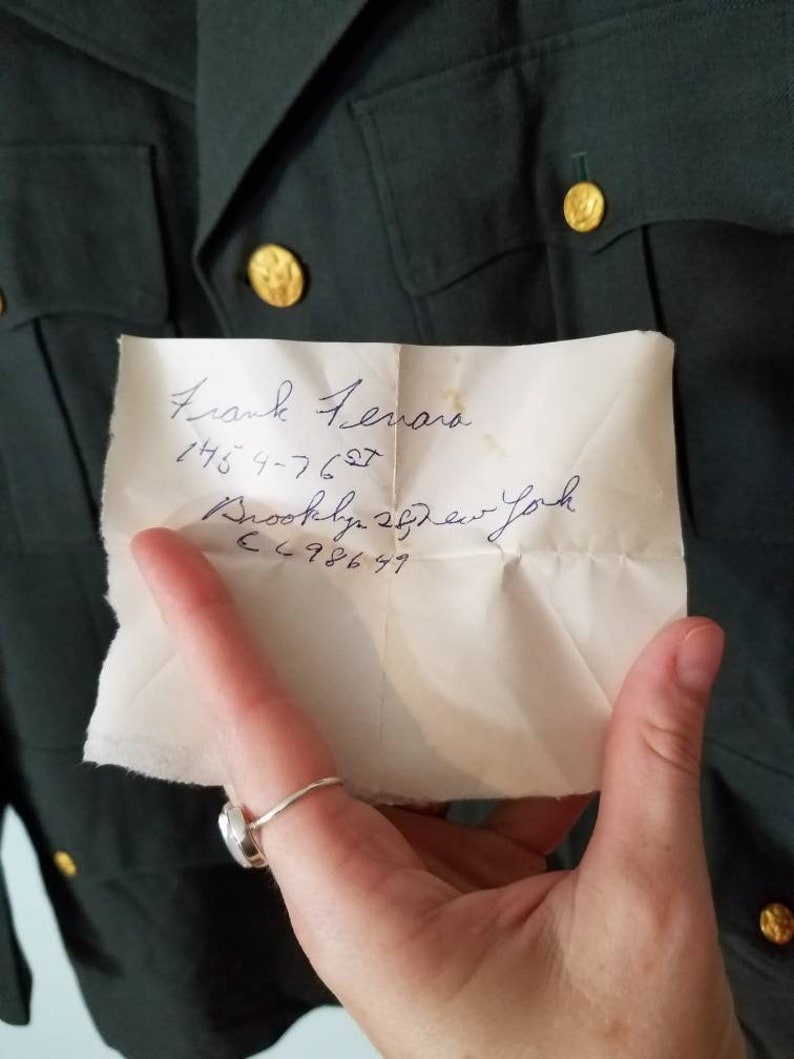 Frank Ferrara
1454-76ST
Brooklyn 28, New York
CL98649